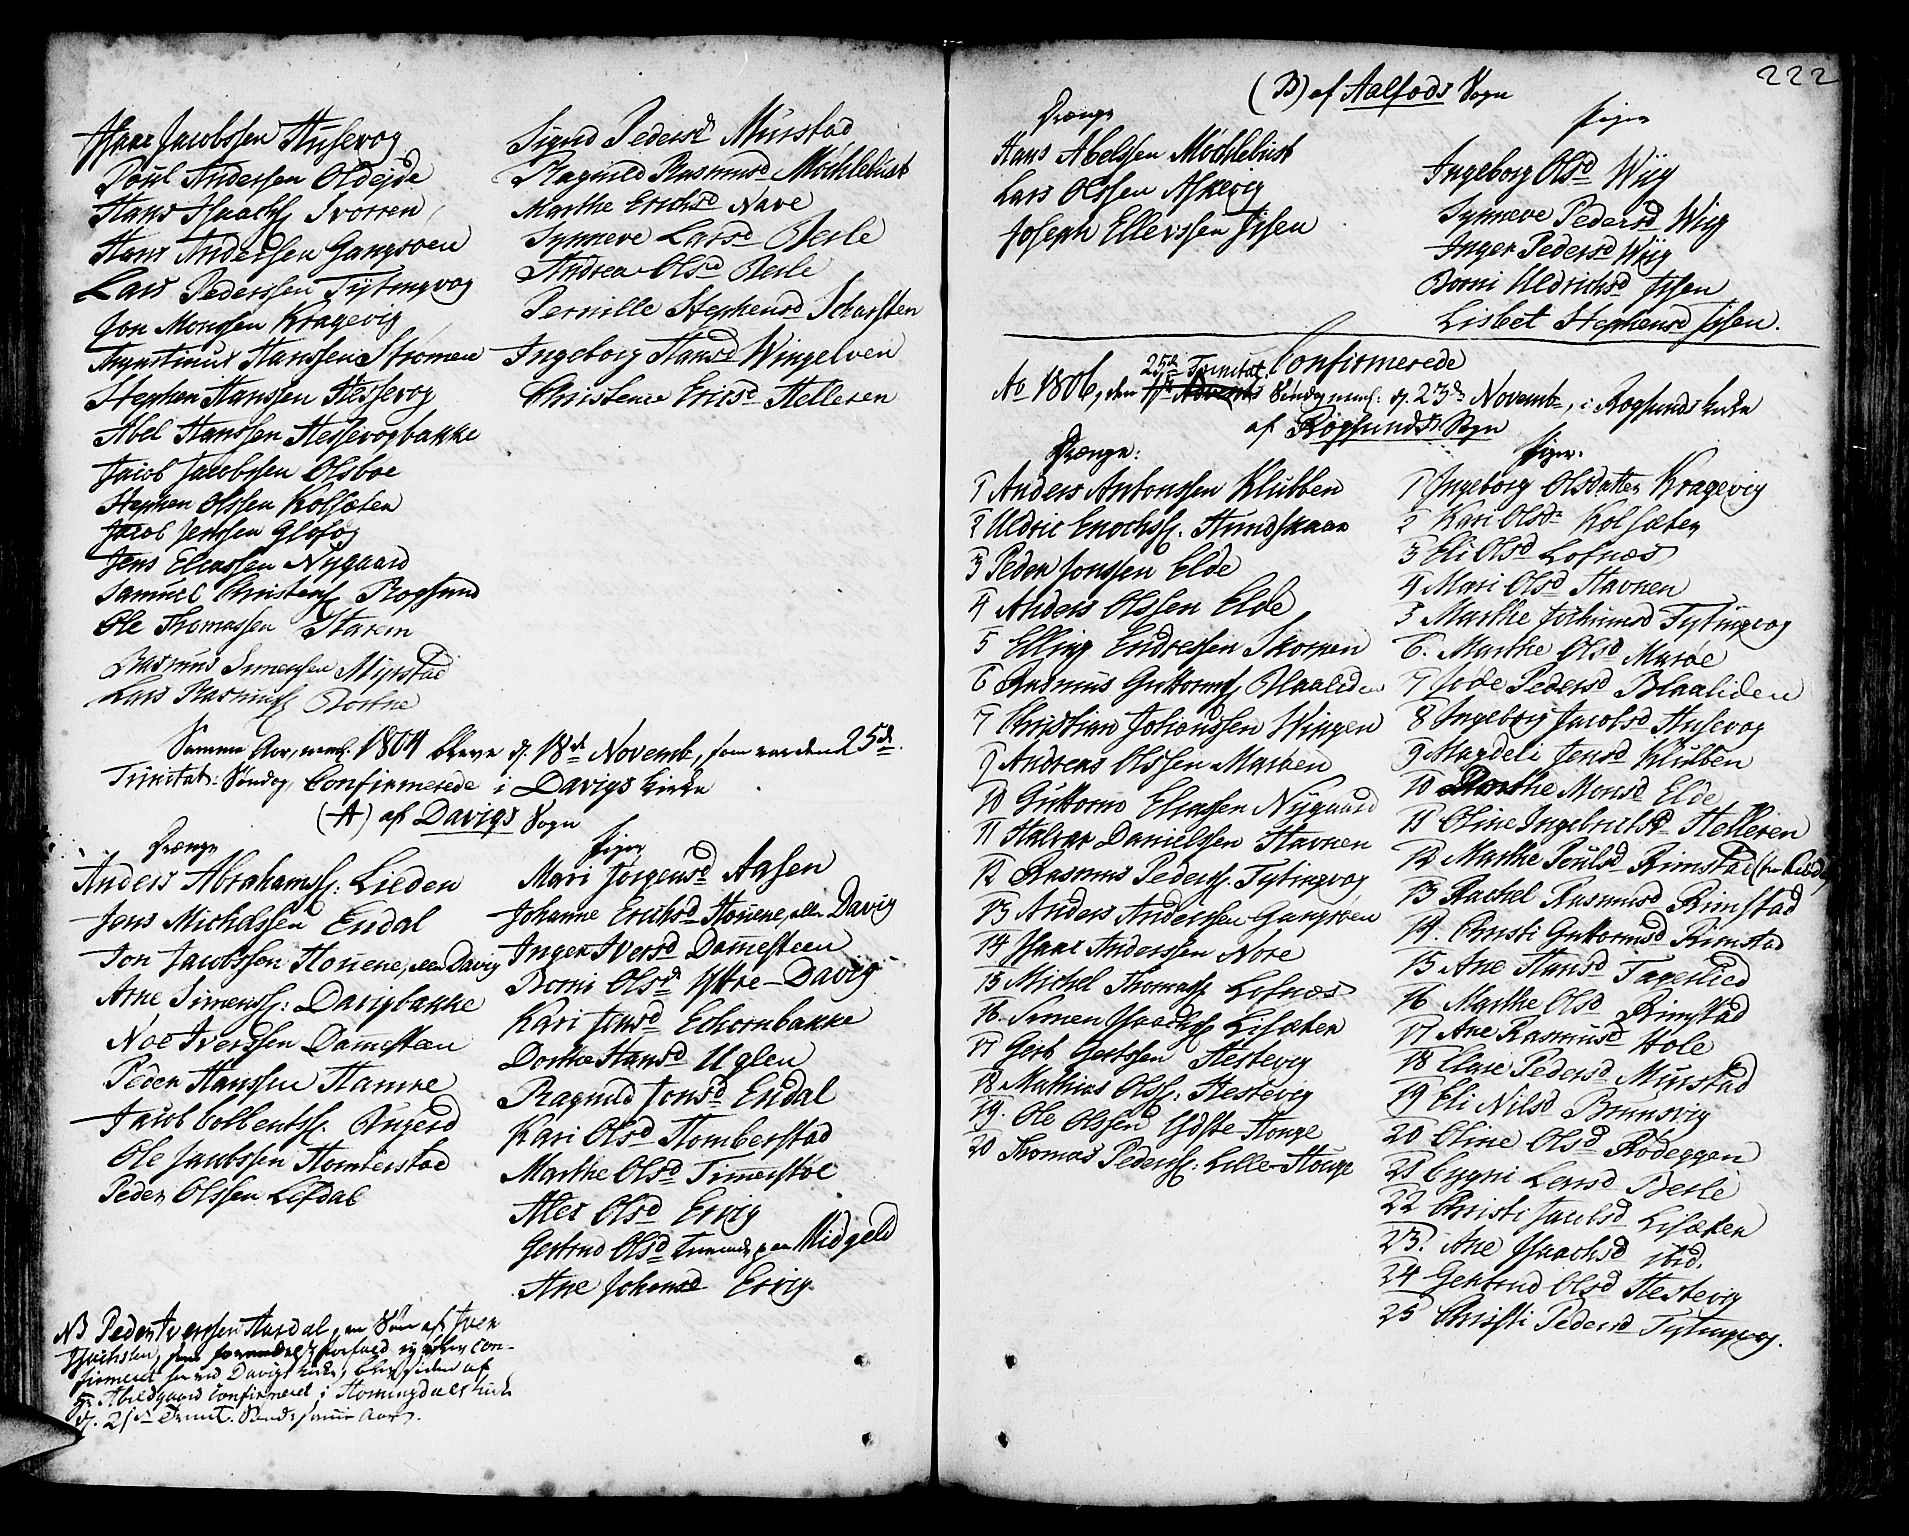 Isaac Jacobssen Husevog
Poul Anderssen Oldejde
Hans Isachs. Svorren
Hans Anderssen Gangsøen
Lars Pederssen Tytingvog
Jon Monssen Kragevig
Augustinus Hanssen Skomen
Stephen Hanssen Hessevog
Abel Hanssen Hessevogbakke
Jacob Jacobssen Olsboe
Stephen Olssen Kolsæter
Jacob Jenssen Glofog
Jens Eliassen Nygaard
Samuel Christens. Rogsund
Ole Thomassen Starem
Rasmus Simenssen Myrstad
Lars Rasmuss.
Sigrid Pedersd Murstad
Ragnild Rasmusd Mochlebust
Marthe Erichsd Nave
Synneve Larsd Berle
Andrea Olsd Berle
Pernille Stephensd Scharsten
Ingeborg Hansd Wingelven
Christence Ericsd Helleren
Samme Aar, neml. 1804 bleve d. 18de Novemb., som var den 25de
Trinitat: Søndag, Confirmerede i Davigs Kirke
(A) af Davigs Sogn
Drenge
Anders Abrahamss: Lieden
Jens Michelssen Endal
Jon Jacobssen Houene, eller Davig
Arne Simenss: Davigbakke
Noe Iverssen Damesteen
Peder Hanssen Hamre
Jacob Colbentss. Rugerd
Ole Jacobssen Homberstad
Peder Olssen Lefdal
Piger
Mari Jørgensd Aasen
Johanne Erichsd Houene, eller Davig
Inger Iversd Damesteen
Borni Olsd Yttre-Davig
Kari Jonsd Echornbakke
Dorthe Hansd Uglen
Ragnild Jonsd Endal
Kari Olsd Homberstad
Marthe Olsd Timerstøl
Ales Olsd Ervig
Gertrud Olsd Midgeld
Ane Johansd Ervig
NB Peder Iverssen Aardal, en Søn af Iver
Isachsen, confirmeret her ved Davigs Kirke, blev siden af
Hr Abildgaard confirmeret i Horningdals Kirke
d. 21de Trinit. Sønd. samme Aar.
222
(B) af Aalfods Sogn
Drenge
Hans Abelssen Mochlebust
Lars Olssen Askevig
Joseph Ellevssen Isen
Piger
Ingeborg Olsd Wiig
Synneve Pedersd Wiig
Inger Pedersd Wiig
Borni Uldrichsd Isen
Lisbet Stephensd Isen.
Confirmerede
Ao 1806, den 25de Trinitat. Søndag neml: d. 23de Novemb., i Rogsunds Kirke
af Rogsunds Sogn
Drenge:
1 Anders Antonssen Klubben
2 Uldric Enochss. Hundskaar
3 Peder Jonssen Elde
4 Anders Olssen Elde
5 Elling Endressen Skomen
6 Rasmus Guttorms. Blaaliden
7 Christian Johanssen Wingen
9 Andreas Olssen Maroen
10 Guttorm Eliassen Nygaard
11 Halvor Danielssen Havnen
12 Rasmus Pederss. Tytingvog
13 Anders Anderssen Gangsøen
14 Isaac Anderssen Nore
15 Michel Thomass. Lofnæs
16. Simen Isachs. Lisæter
17 Gert Gertssen Hestevig
18 Mathias Olss. Hestevig
19. Ole Olssen Ydste-Houge
20 Thomas Pederss: Lille-Houge
Piger.
1 Ingeborg Olsdatter Kragevig
2 Kari Olsdr Kolsæter
3 Eli Olsd Lofnæs
4 Mari Olsd Havnen
5 Marthe Jochumsd Tytingvog
6. Marthe Olsd Maroe
7 Jode Pedersd Blaaliden
8 Ingeborg Jacobsd Husevog
9 Magdeli Jensd Klubben
10 Dorthe Monsd Elde
11 Oline Ingebrictsd Helleren
12 Marthe Poulsd Rimstad
13 Rachel Rasmusd Rimstad
14 Christi Guttormsd Rimstad
15 Ane Hansd Tageslied
16 Marthe Olsd Rimstad
17 Ane Rasmusd Hole
18 Clare Pedersd Murstad
19 Eli Nilsd Brunsvig
20 Oline Olsd Rodeggen
21 Eugni Larsd Berle
22 Christi Jacobsd Lisæter
23. Ane Isaachsd ibid.
24 Gertrud Olsd Hestevig
25 Christi Pedersd Tytingvog.